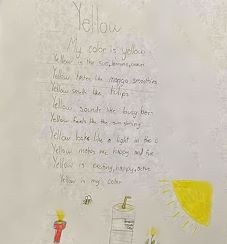 Yellow
My color is yellow
Yellow is the sun, lemons,
Yellow tastes like mango smoothies
Yellow smells like tulips
Yellow sounds like busy bees
Yellow feels like the sun shining
Yellow looks like a light in the
Yellow makes me happy and
Yellow is exciting, happy, active
Yellow is my color